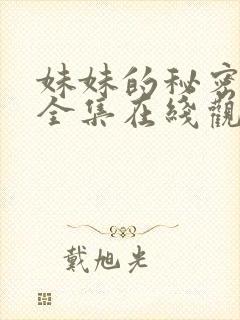 妹妹的秘密
全集在綫觀
戴旭光